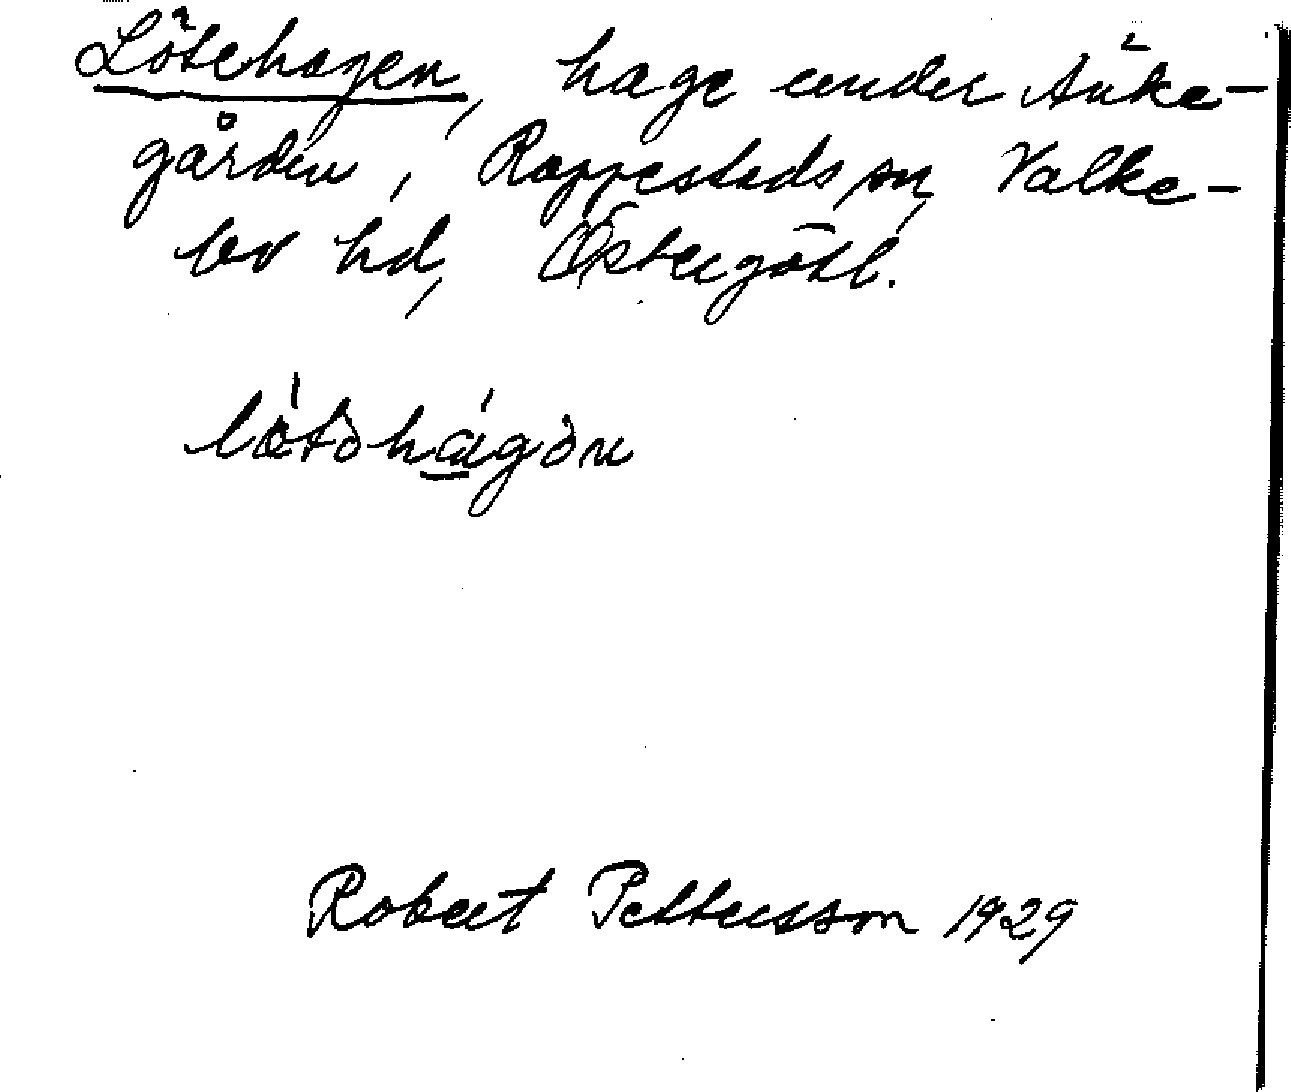 Lötehagen, hage under Änke-
gården, Rappestads sn, Valke-
bo hd, Östergötl.
Robert Pettersson 1929